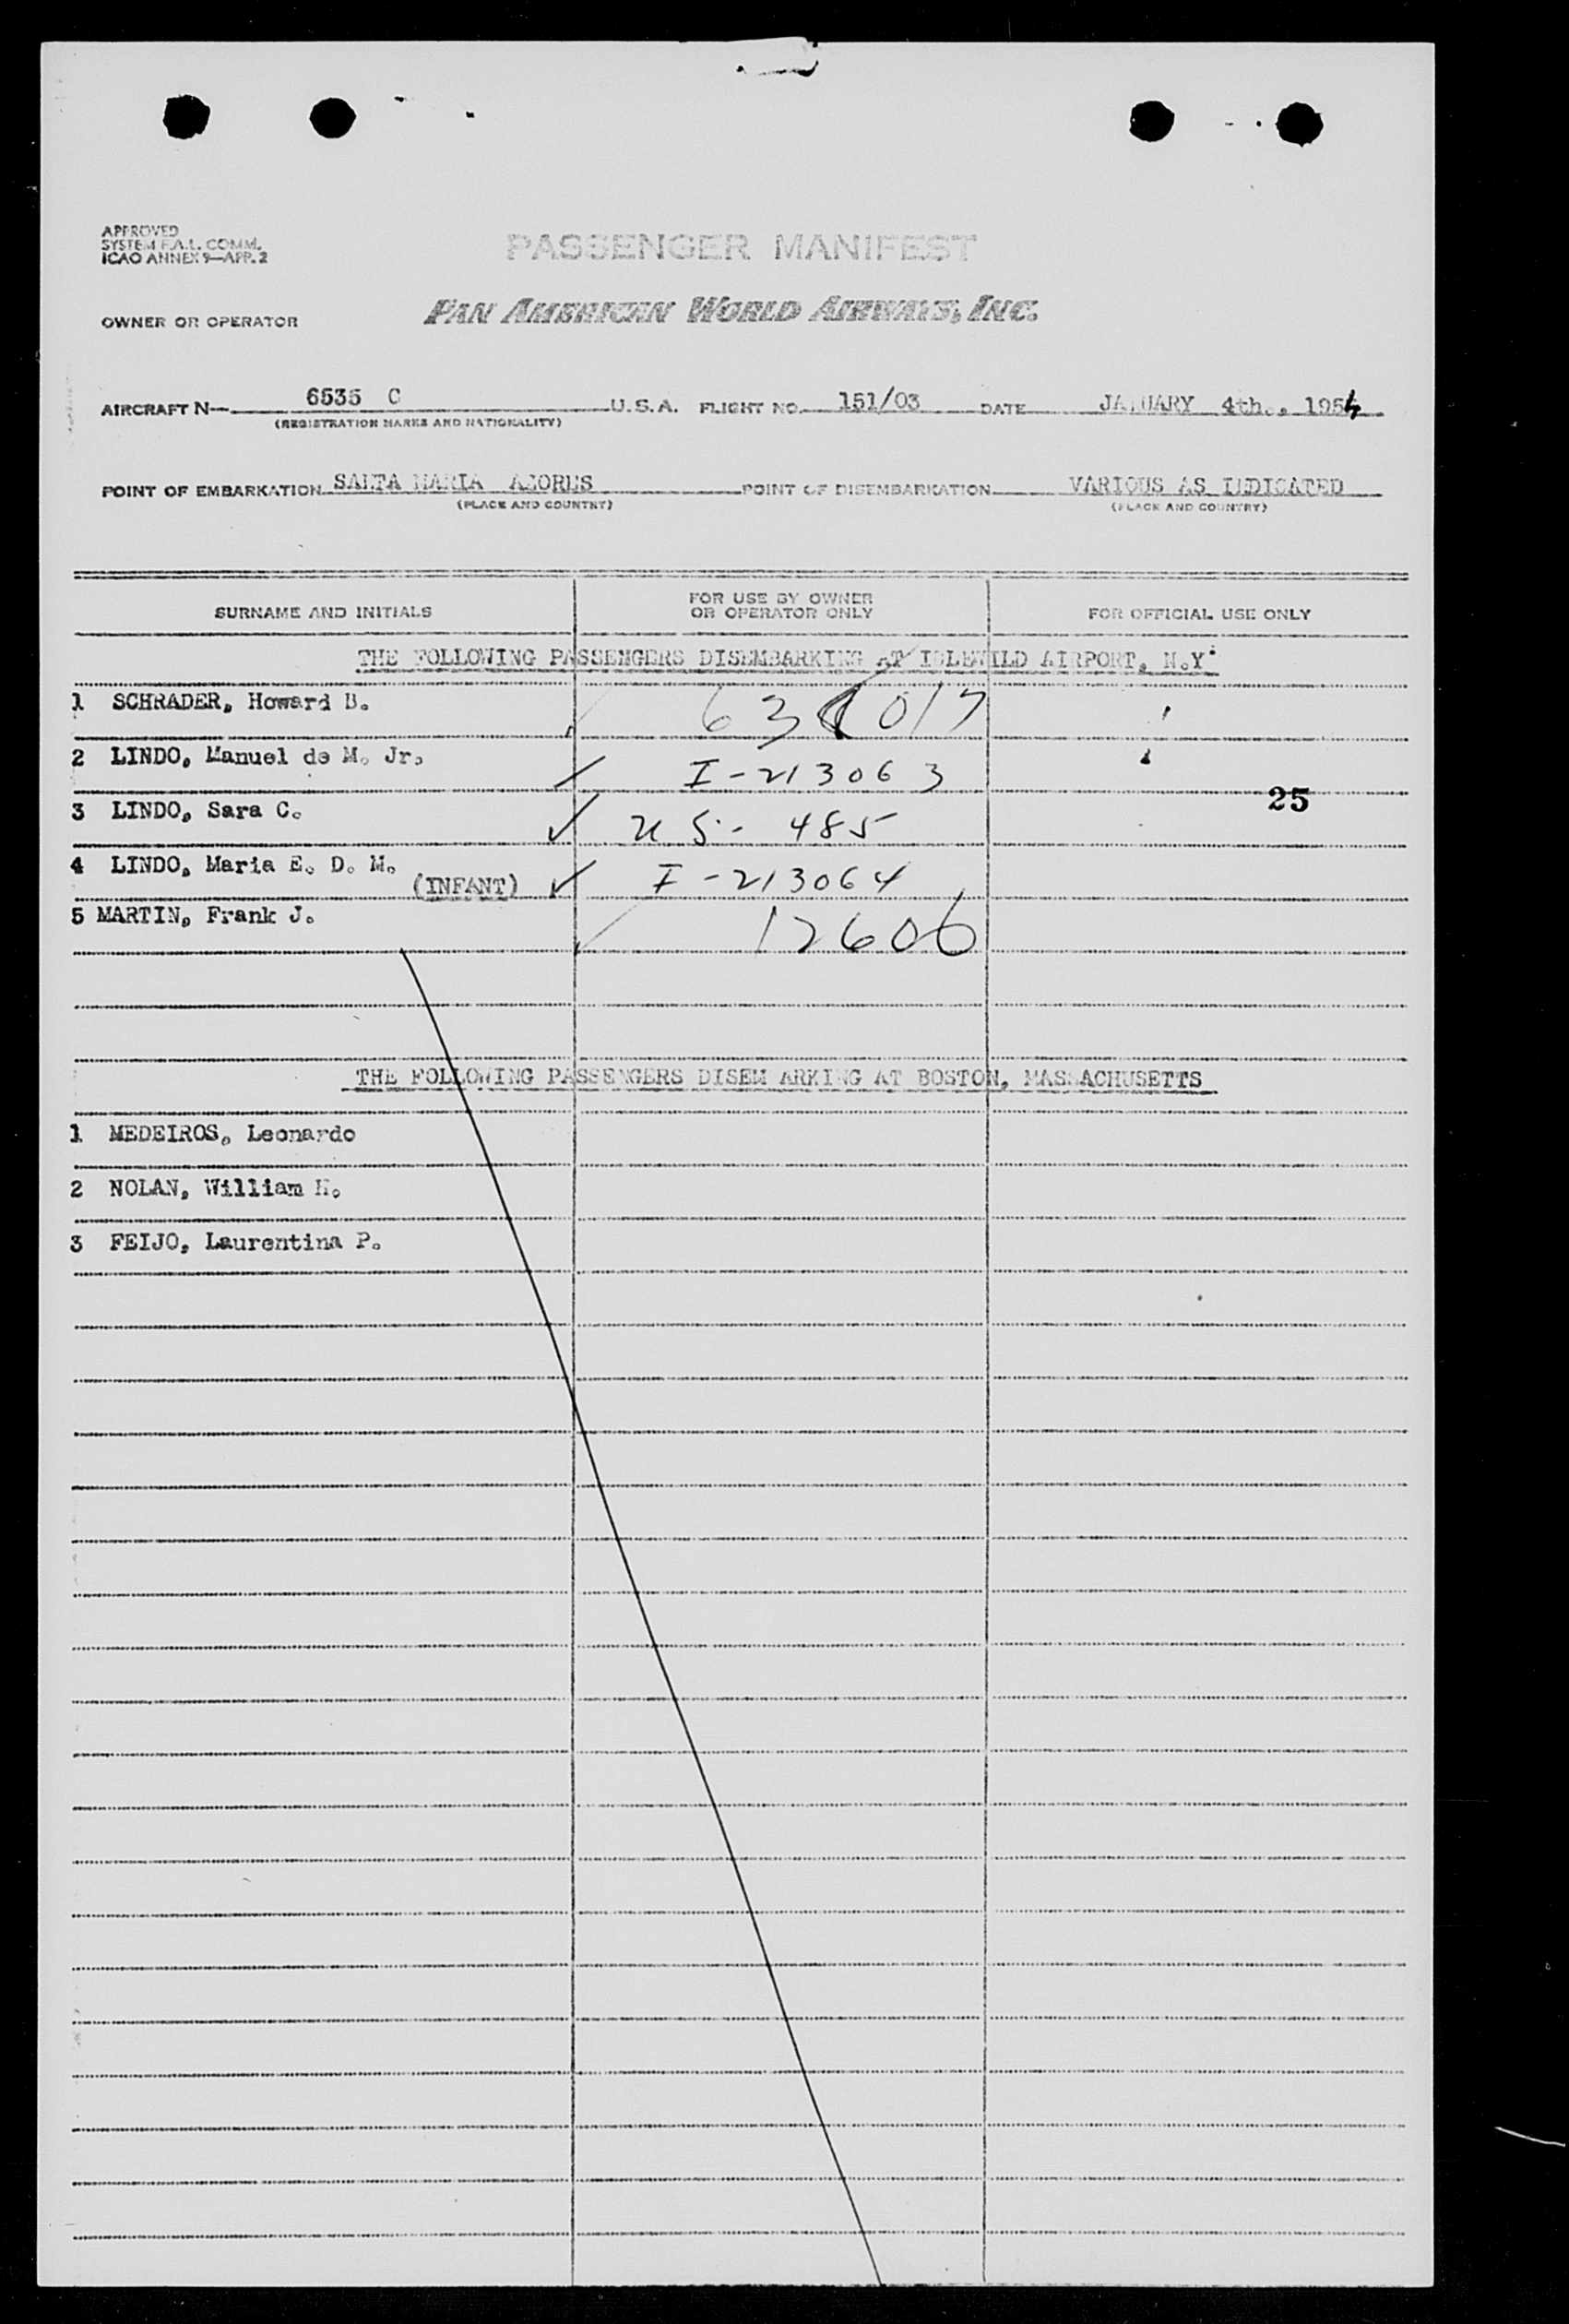 APPROVED
SYSTEM F.A.L. COMM.
ICAO ANNEX 9—APP. 2
PASSENGER MANIFEST
OWNER OR OPERATOR PAN AMERICAN WORLD AIRWAYS, INC.
AIRCRAFT N— 6535 C U.S.A. FLIGHT NO. 151/03 DATE JANUARY 4th., 1954
(REGISTRATION MARKS AND NATIONALITY)
POINT OF EMBARKATION SANTA MARIA AZORES POINT OF DISEMBARKATION VARIOUS AS INDICATED
(PLACE AND COUNTRY) (PLACE AND COUNTRY)
SURNAME AND INITIALS FOR USE BY OWNER OR OPERATOR ONLY FOR OFFICIAL USE ONLY
THE FOLLOWING PASSENGERS DISEMBARKING AT IDLEWILD AIRPORT, N.Y.
1 SCHRADER, Howard B.
2 LINDO, Manuel de M. Jr. I-213063
25
3 LINDO, Sara C. US- 485
4 LINDO, Maria E. D. M. (INFANT) I-213064
5 MARTIN, Frank J. 12606
THE FOLLOWING PASSENGERS DISEM ARKING AT BOSTON, MASSACHUSETTS
1 MEDEIROS, Leonardo
2 NOLAN, William H.
3 FEIJO, Laurentina P.